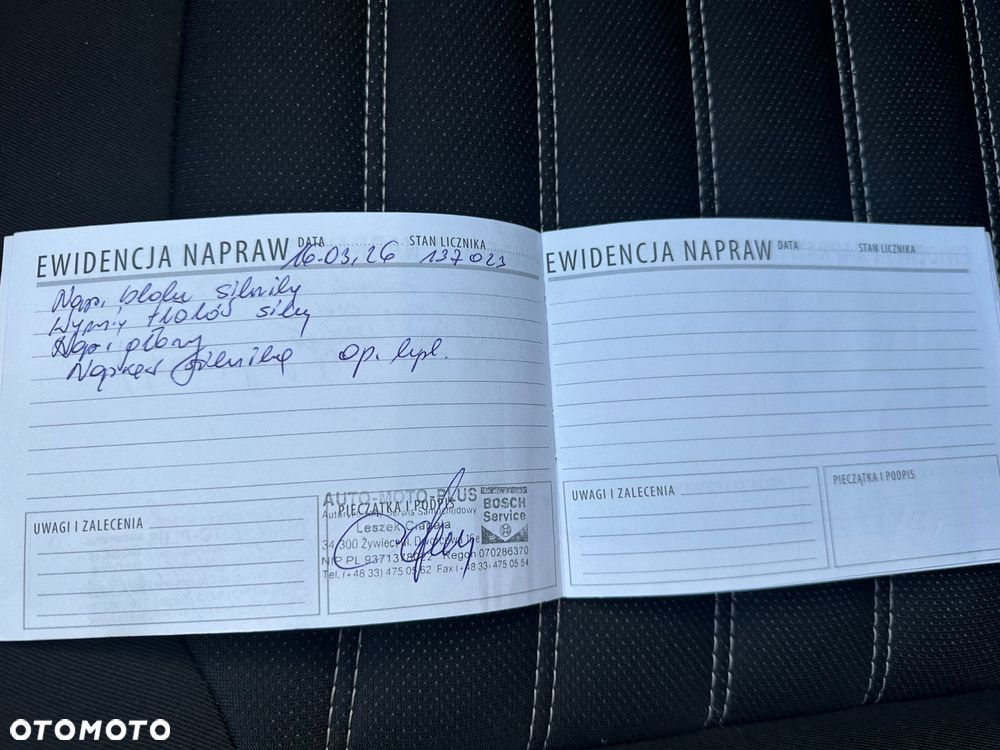 EWIDENCJA NAPRAW DATA 16.03.26 STAN LICZNIKA 137 023
Nap. bloku silnika
tłoków
Nap. głowy
silnika op. kpl.
UWAGI I ZALECENIA
PIECZĄTKA I PODPIS
AUTO-MOTO-PLUS
Serwis Samochodowy
Leszek
34-300 Żywiec, ul.
NIP PL Regon 070286370
Tel. (+48 33) 475 05 52 Fax (+48 33) 475 05 54
BOSCH
Service
EWIDENCJA NAPRAW DATA STAN LICZNIKA
UWAGI I ZALECENIA
PIECZĄTKA I PODPIS
OTOMOTO